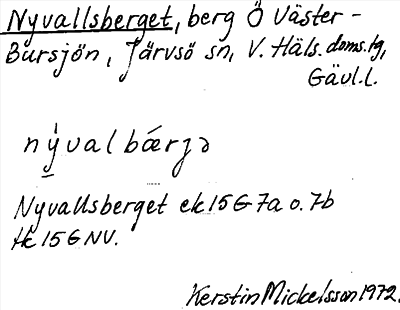 Nyvallsberget, berg Ö Väster-
Bursjön, Järvsö sn, V. Häls. doms.tg,
Gävl.l.
nẏ́valbǽrjə
Nyvallsberget ek 15G 7a o. 7b
Hk 15G NV.
Kerstin Mickelsson 1972.